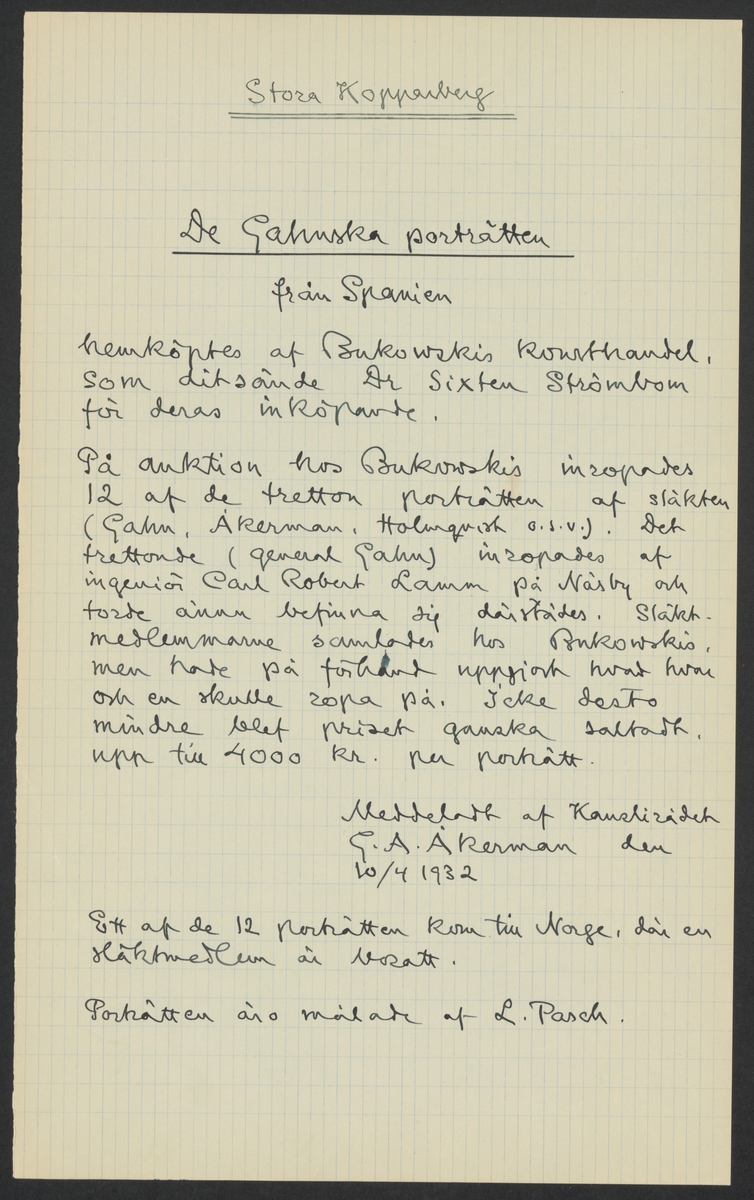 Stora Kopparberg
De Gahnska porträtten
från Spanien
hemköptes af Bukowskis konsthandel,
som ditsände Dr Sixten Strömbom
för deras inköpande.
På auktion hos Bukowskis inropades
12 af de tretton porträtten af släkten
(Gahn, Åkerman, Holmquist o.s.v.). Det
trettonde (general Gahn) inropades af
ingeniör Carl Robert Lamm på Näsby och
torde ännu befinna sig därstädes. Släkt-
medlemmarne samlades hos Bukowskis,
men hade på förhand uppgjort hvad hvar
och en skulle ropa på. Icke desto
mindre blef priset ganska saltadt,
upp till 4000 kr. per porträtt.
Meddeladt af Kanslirådet
G. A. Åkerman den
10/4 1932
Ett af de 12 porträtten kom till Norge, där en
släktmedlem är bosatt.
Porträtten äro målade af L. Pasch.